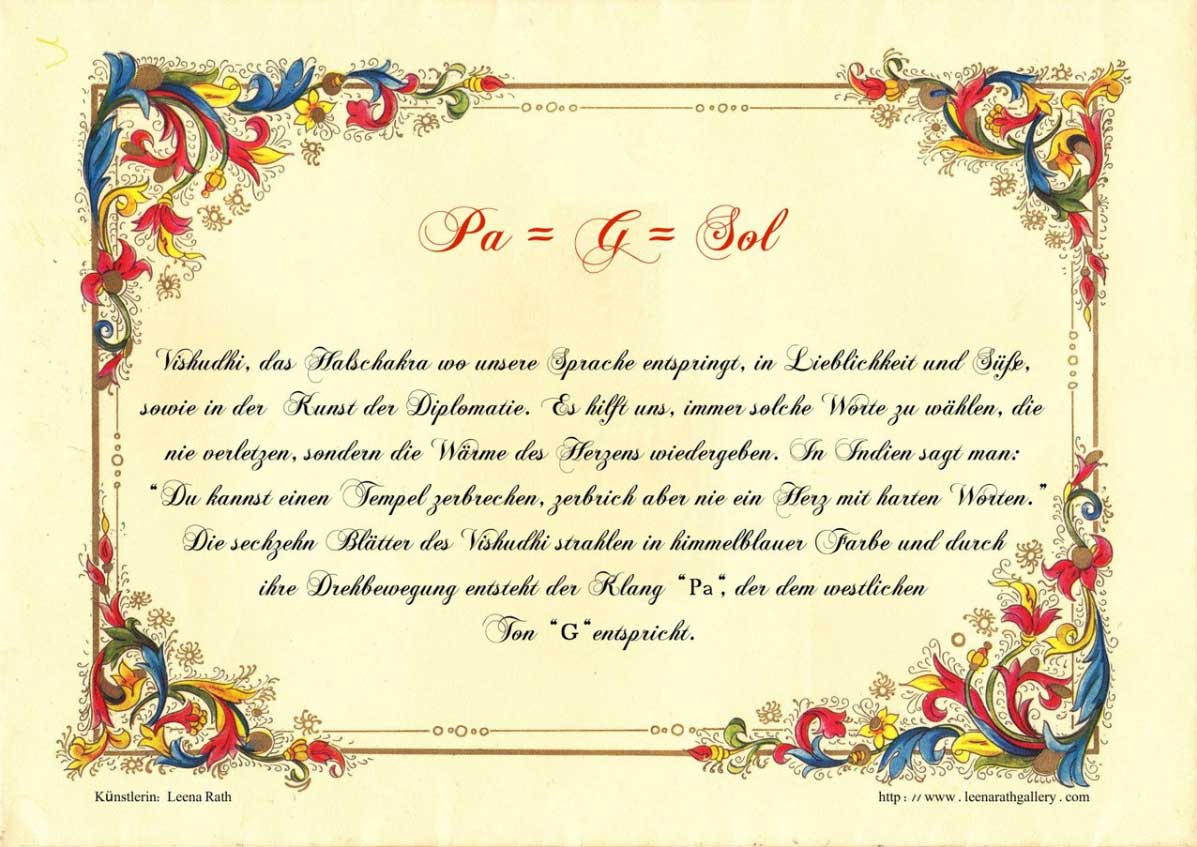 Pa = G = Sol
Vishudhi, das Halschakra wo unsere Sprache entspringt, in Lieblichkeit und Süße,
sowie in der Kunst der Diplomatie. Es hilft uns, immer solche Worte zu wählen, die
nie verletzen, sondern die Wärme des Herzens wiedergeben. In Indien sagt man:
“Du kannst einen Tempel zerbrechen, zerbrich aber nie ein Herz mit harten Worten.”
Die sechzehn Blätter des Vishudhi strahlen in himmelblauer Farbe und durch
ihre Drehbewegung entsteht der Klang “Pa“, der dem westlichen
Ton “G“entspricht.
Künstlerin: Leena Rath
http : // www . leenarathgallery . com